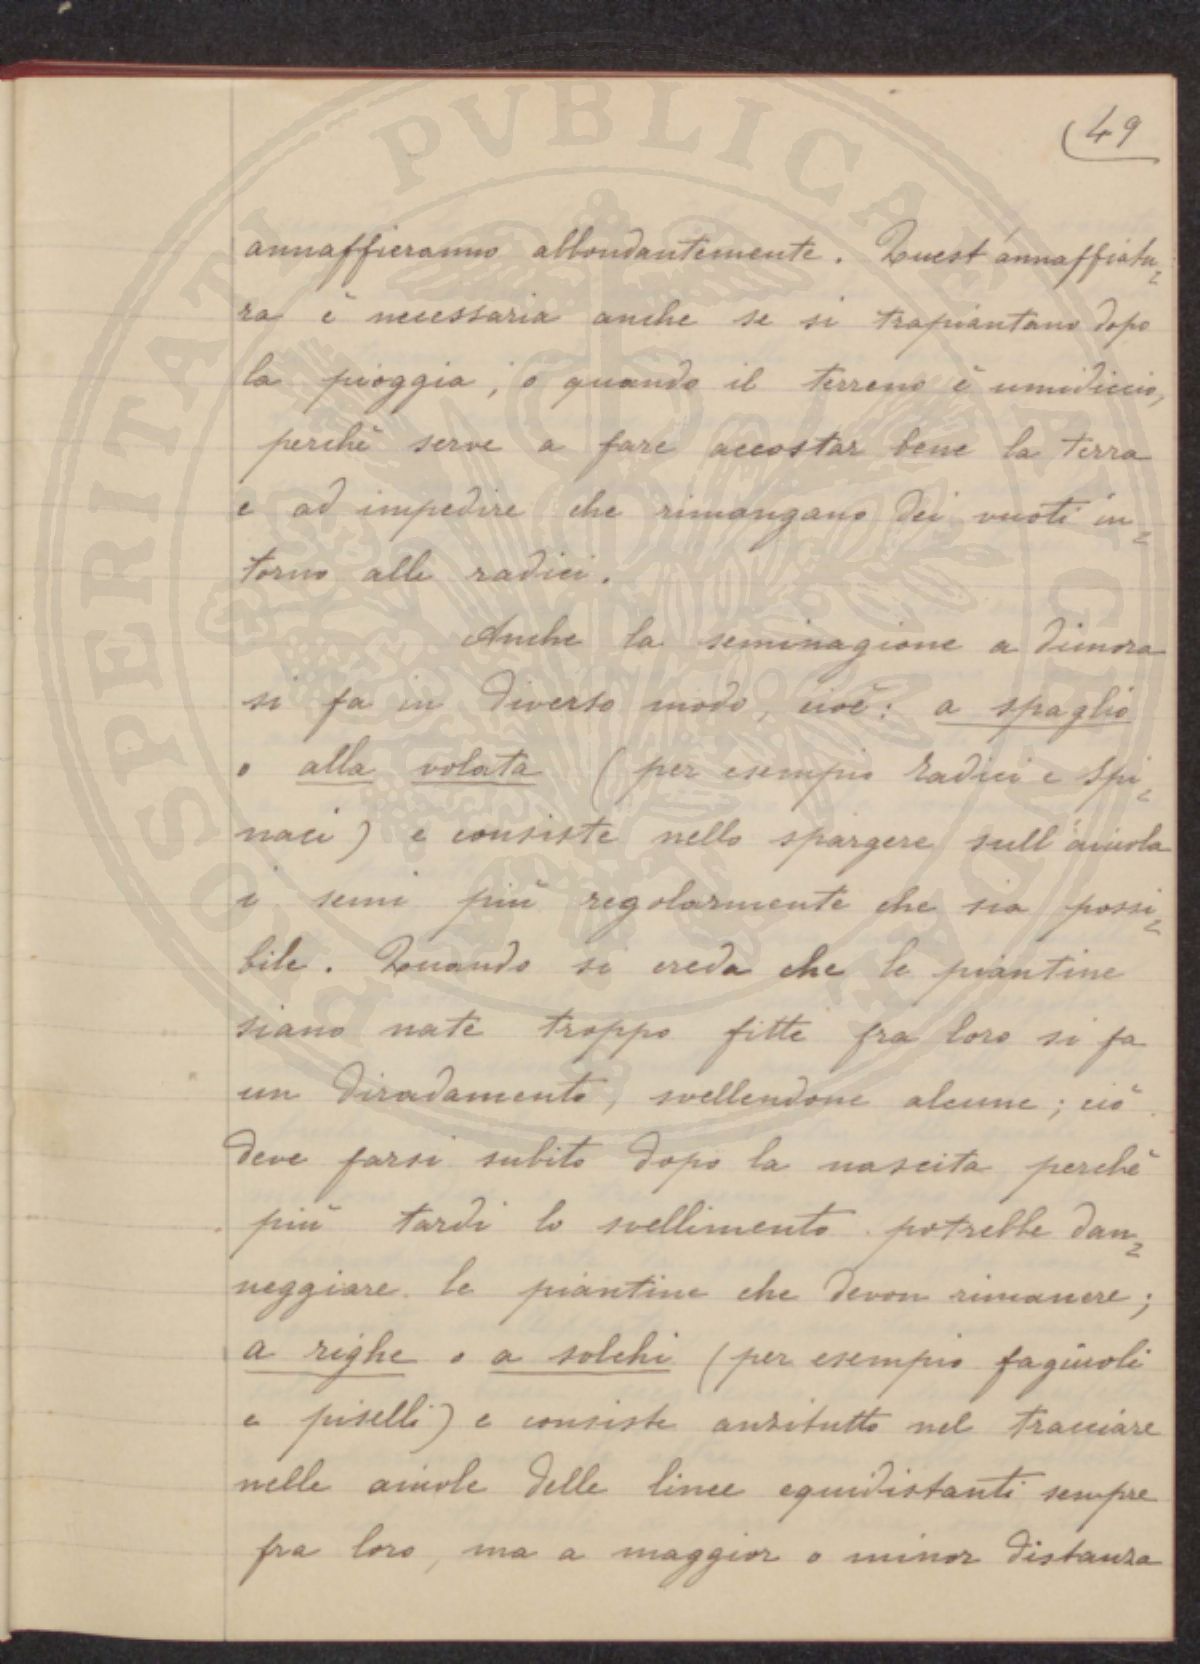 49
annaffieranno abbondantemente. Quest'annaffiatu=
ra è necessaria anche se si trapiantano dopo
la pioggia, o quando il terreno è umidiccio,
perchè serve a fare accostar bene la terra
e ad impedire che rimangano dei vuoti in=
torno alle radici.
Anche la seminagione a dimora
si fa in diverso modo, cioè: a spaglio
o alla volata (per esempio radici e spi=
naci) e consiste nello spargere sull'aiuola
i semi più regolarmente che sia possi=
bile. Quando si creda che le piantine
siano nate troppo fitte fra loro si fa
un diradamento, svellendone alcune; ciò
deve farsi subito dopo la nascita perchè
più tardi lo svellimento potrebbe dan=
neggiare le piantine che devon rimanere;
a righe o a solchi (per esempio fagiuoli
e piselli) e consiste anzitutto nel tracciare
nelle aiuole delle linee equidistanti sempre
fra loro, ma a maggior o minor distanza
PROSPERITATI PVBLICAE AVGENDAE